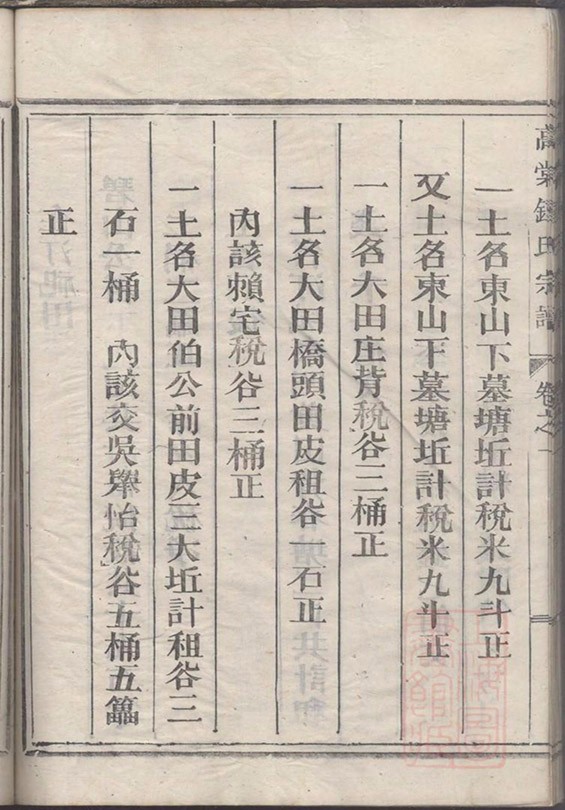 高棠鍾氏宗譜 卷之一
一土名東山下墓塘坵計稅米九斗正
又土名東山下墓塘坵計稅米九斗正
一土名大田庄背稅谷三桶正
一土名大田橋頭田皮租谷一石正
內該賴宅稅谷三桶正
一土名大田伯公前田皮三大坵計租谷三
石一桶 內該交吳舉怡稅谷五桶五籮
正